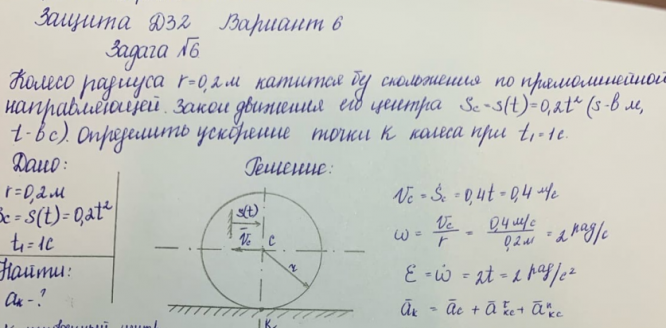 Защита Д32 Вариант 6
Задача №6
Колесо радиуса r=0,2м катится без скольжения по прямолинейной
направляющей. Закон движения его центра Sc=s(t)=0,2t² (s-в м,
t-в с). Определить ускорение точки К колеса при t₁=1с.
Дано:
r=0,2м
Sc=s(t)=0,2t²
t₁=1с
Найти:
aк-?
Решение:
s(t)
V̄c
C
r
K
Vc=Ṡc=0,4t=0,4 м/с
ω = Vc/r = 0,4м/с / 0,2м = 2 рад/с
Ɛ = ω̇ = 2t = 2 рад/с²
āк = āc + āᵗкc + āⁿкc